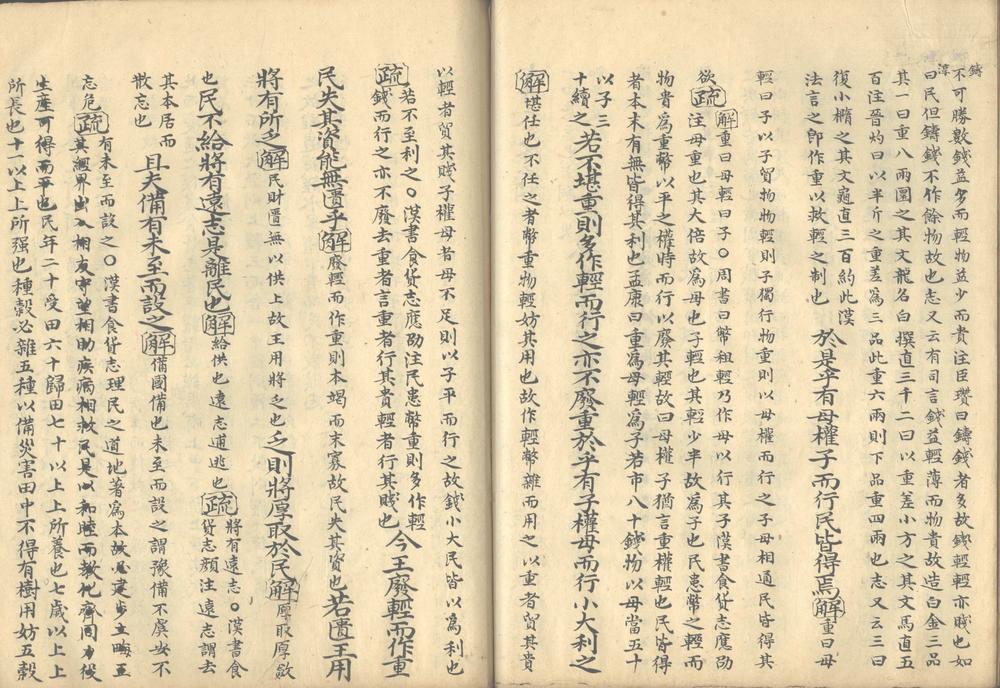 鋳
不可勝數錢益多而輕物益少而貴注臣瓚曰鑄錢者多故錢輕輕亦賤也如
淳
曰民但鑄錢不作餘物故也志又云有司言錢益輕薄而物貴故造白金三品
其一曰重八兩圜之其文龍名白撰直三千二曰以重差小方之其文馬直五
百注晉灼曰以半斤之重差爲三品此重六兩則下品重四兩也志又云三曰
復小橢之其文龜直三百約此漢
法言之即作重以救輕之制也
於是乎有母權子而行民皆得焉解重曰母
輕曰子以子貿物物輕則子獨行物重則以母權而行之子母相通民皆得其
欲疏解重曰母輕曰子○周書曰幣租輕乃作母以行其子漢書食貨志應劭
注母重也其大倍故爲母也子輕也其輕少半故爲子也民患幣之輕而
物貴爲重幣以平之權時而行以廢其輕故曰母權子猶言重權輕也民皆得
者本末有無皆得其利也孟康曰重爲母輕爲子若市八十錢物以母當五十
以子三
十續之
若不堪重則多作輕而行之亦不廢重於乎有子權母而行小大利之
解堪任也不任之者幣重物輕妨其用也故作輕幣雜而用之以重者貿其貴
以輕者貿其賤子權母者母不足則以子平而行之故錢小大民皆以爲利也
疏若不至利之○漢書食貨志應劭注民患幣重則多作輕
錢而行之亦不廢去重者言重者行其貴輕者行其賤也
今王廢輕而作重
民失其資能無匱乎解廢輕而作重則本竭而末寡故民失其資也若匱王用
將有所乏解民財匱無以供上故王用將乏也乏則將厚取於民解厚取厚斂
也民不給將有遠志是離民也解給供也遠志逋逃也疏將有遠志○漢書食
貨志顏注遠志謂去
其本居而
散忘也
且夫備有未至而設之解備國備也未至而設之謂豫備不虞安不
忘危疏有未至而設之○漢書食貨志理民之道地著爲本故必建步立畮正
其經界出入相友守望相助疾病相救民是以和睦而教化齊同力役
生產可得而平也民年二十受田六十歸田七十以上上所養也七歲以上上
所長也十一以上上所强也種穀必雜五種以備災害田中不得有樹用妨五穀